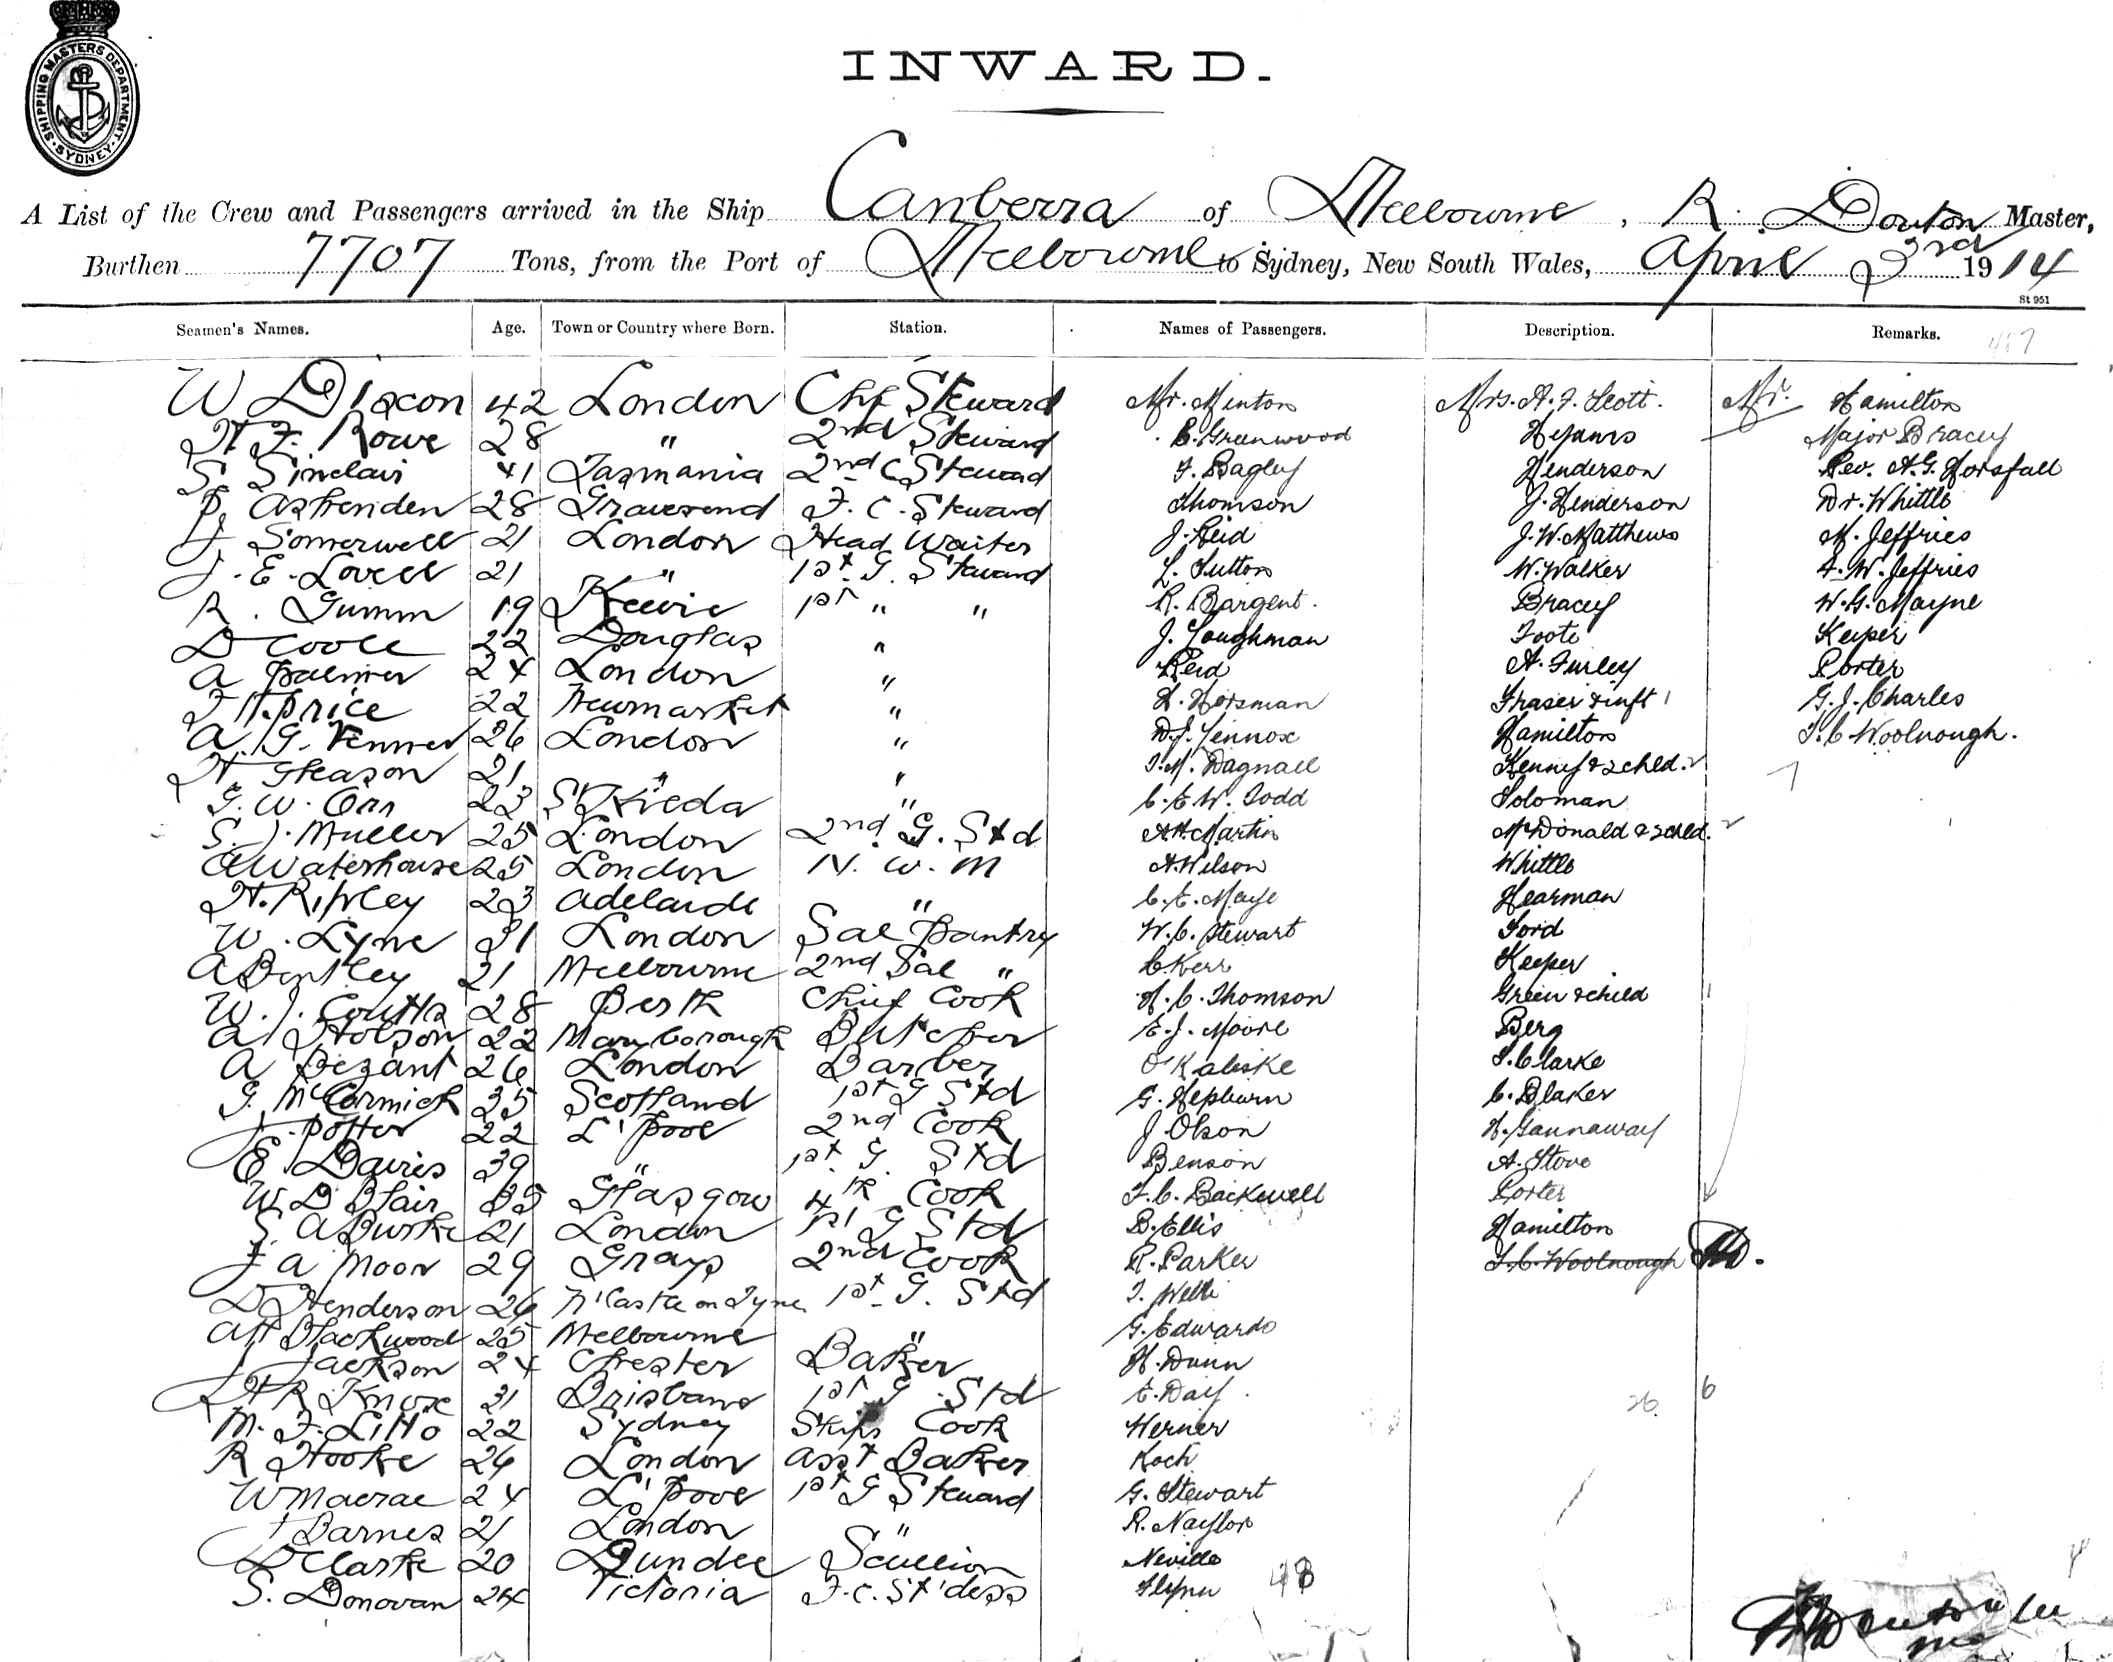 SHIPPING MASTERS DEPARTMENT SYDNEY
INWARD.
A List of the Crew and Passengers arrived in the Ship Canberra of Melbourne, R. Master,
Burthen 7707 Tons, from the Port of Melbourne to Sydney, New South Wales, April 3rd 1914
St 951
Seamen's Names. Age. Town or Country where Born. Station. Names of Passengers. Description. Remarks. 487
W Dixon 42 London Chf Steward Mr. Minton Mrs. A. F. Scott. Mr. Hamilton
H F. Rowe 28 " 2nd Steward C. Greenwood Major Bracey
S. Sinclair 41 Tasmania 2nd C Steward F. Bagley Henderson Rev. A. G. Horsfall
Ashenden 28 Gravesend F. C. Steward Thomson J. Henderson Dr. Whittle
Somerwell 21 London Head Waiter J. Reid J. W. Matthews M. Jeffries
J. E. Lovell 21 " 1st G. Steward L. Sutton W. Walker F. W. Jeffries
R. Gumm 19 1st " " R. Bargent. Bracey W. G. Mayne
D Coole 22 Douglas " J. Loughman Foote Keeper
A Palmer 24 London " Reid A. Furley Porter
F H. Price 22 Newmarket " H. Horsman Fraser & inft 1 G. J. Charles
A. G. Venner 26 London " D. J. Lennox Hamilton T. C Woolnough.
H Gleason 21 " " T. M. Dagnall Kenny & 2 chld. 2
G. W. Orr 23 St Kilda " C. E. W. Todd Soloman
S. J. Muller 25 London 2nd G. Std A. H. Martin McDonald & 2 chld. 2
A Waterhouse 25 London N. W. M A. Wilson Whittle
H. Ripley 23 Adelaide " C. E. Maye Hearman
W. Lyne 31 London Sal Pantry W. C. Stewart Ford
A Bentley 21 Melbourne 2nd Sal " C. Kerr Keeper
W. J. Coutts 28 Perth Chief Cook H. C. Thomson Green & child 1
A Hobson 22 Maryborough Butcher E. J. Moore Berg
A Bezant 26 London Barber O'Kaliske T. Clarke
G. McCormick 35 Scotland 1st G Std G. Hepburn C. Blaker
J. Potter 22 L'Pool 2nd Cook J. Olson H. Gannaway
E Davies 39 " 1st G. Std Benson A. Stove
W D Blair 35 Glasgow 4th Cook F. C. Backwell Porter
S. A Burke 21 London 1st G Std B. Ellis Hamilton
J A Moor 29 Grays 2nd Cook R. Parker T. C. Woolnough
D Henderson 26 N'Castle on Tyne 1st G. Std
A H Blackwood 25 Melbourne " G. Edwards
J Jackson 24 Chester Baker H. Dunn
H R Knox 21 Brisbane 1st G. Std E. Day. 26 6
M. F. Litto 22 Sydney Ships Cook Herner
R Hooke 26 London Asst Baker Koch
W Macrae 24 L'Pool 1st G Steward G. Stewart
J Barnes 21 London " R. Naylor
D Clarke 20 Dundee Scullion Neville
S. Donovan 24 Victoria F. C. St'dess Flynn 48